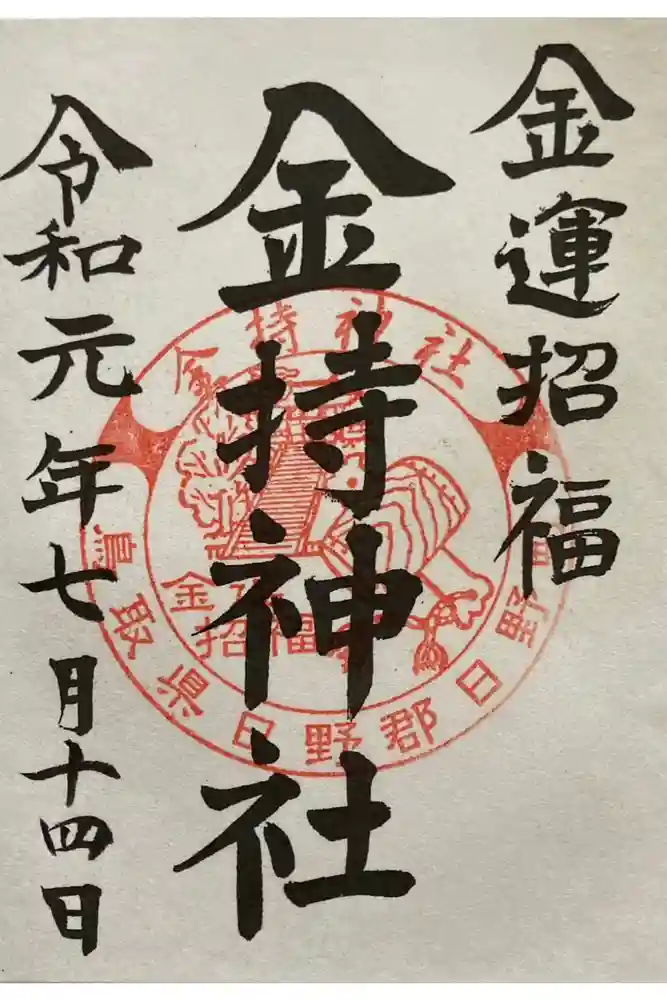 金運招福
金持神社
令和元年七月十四日
金持神社
鳥取県日野郡日野町
金
招福